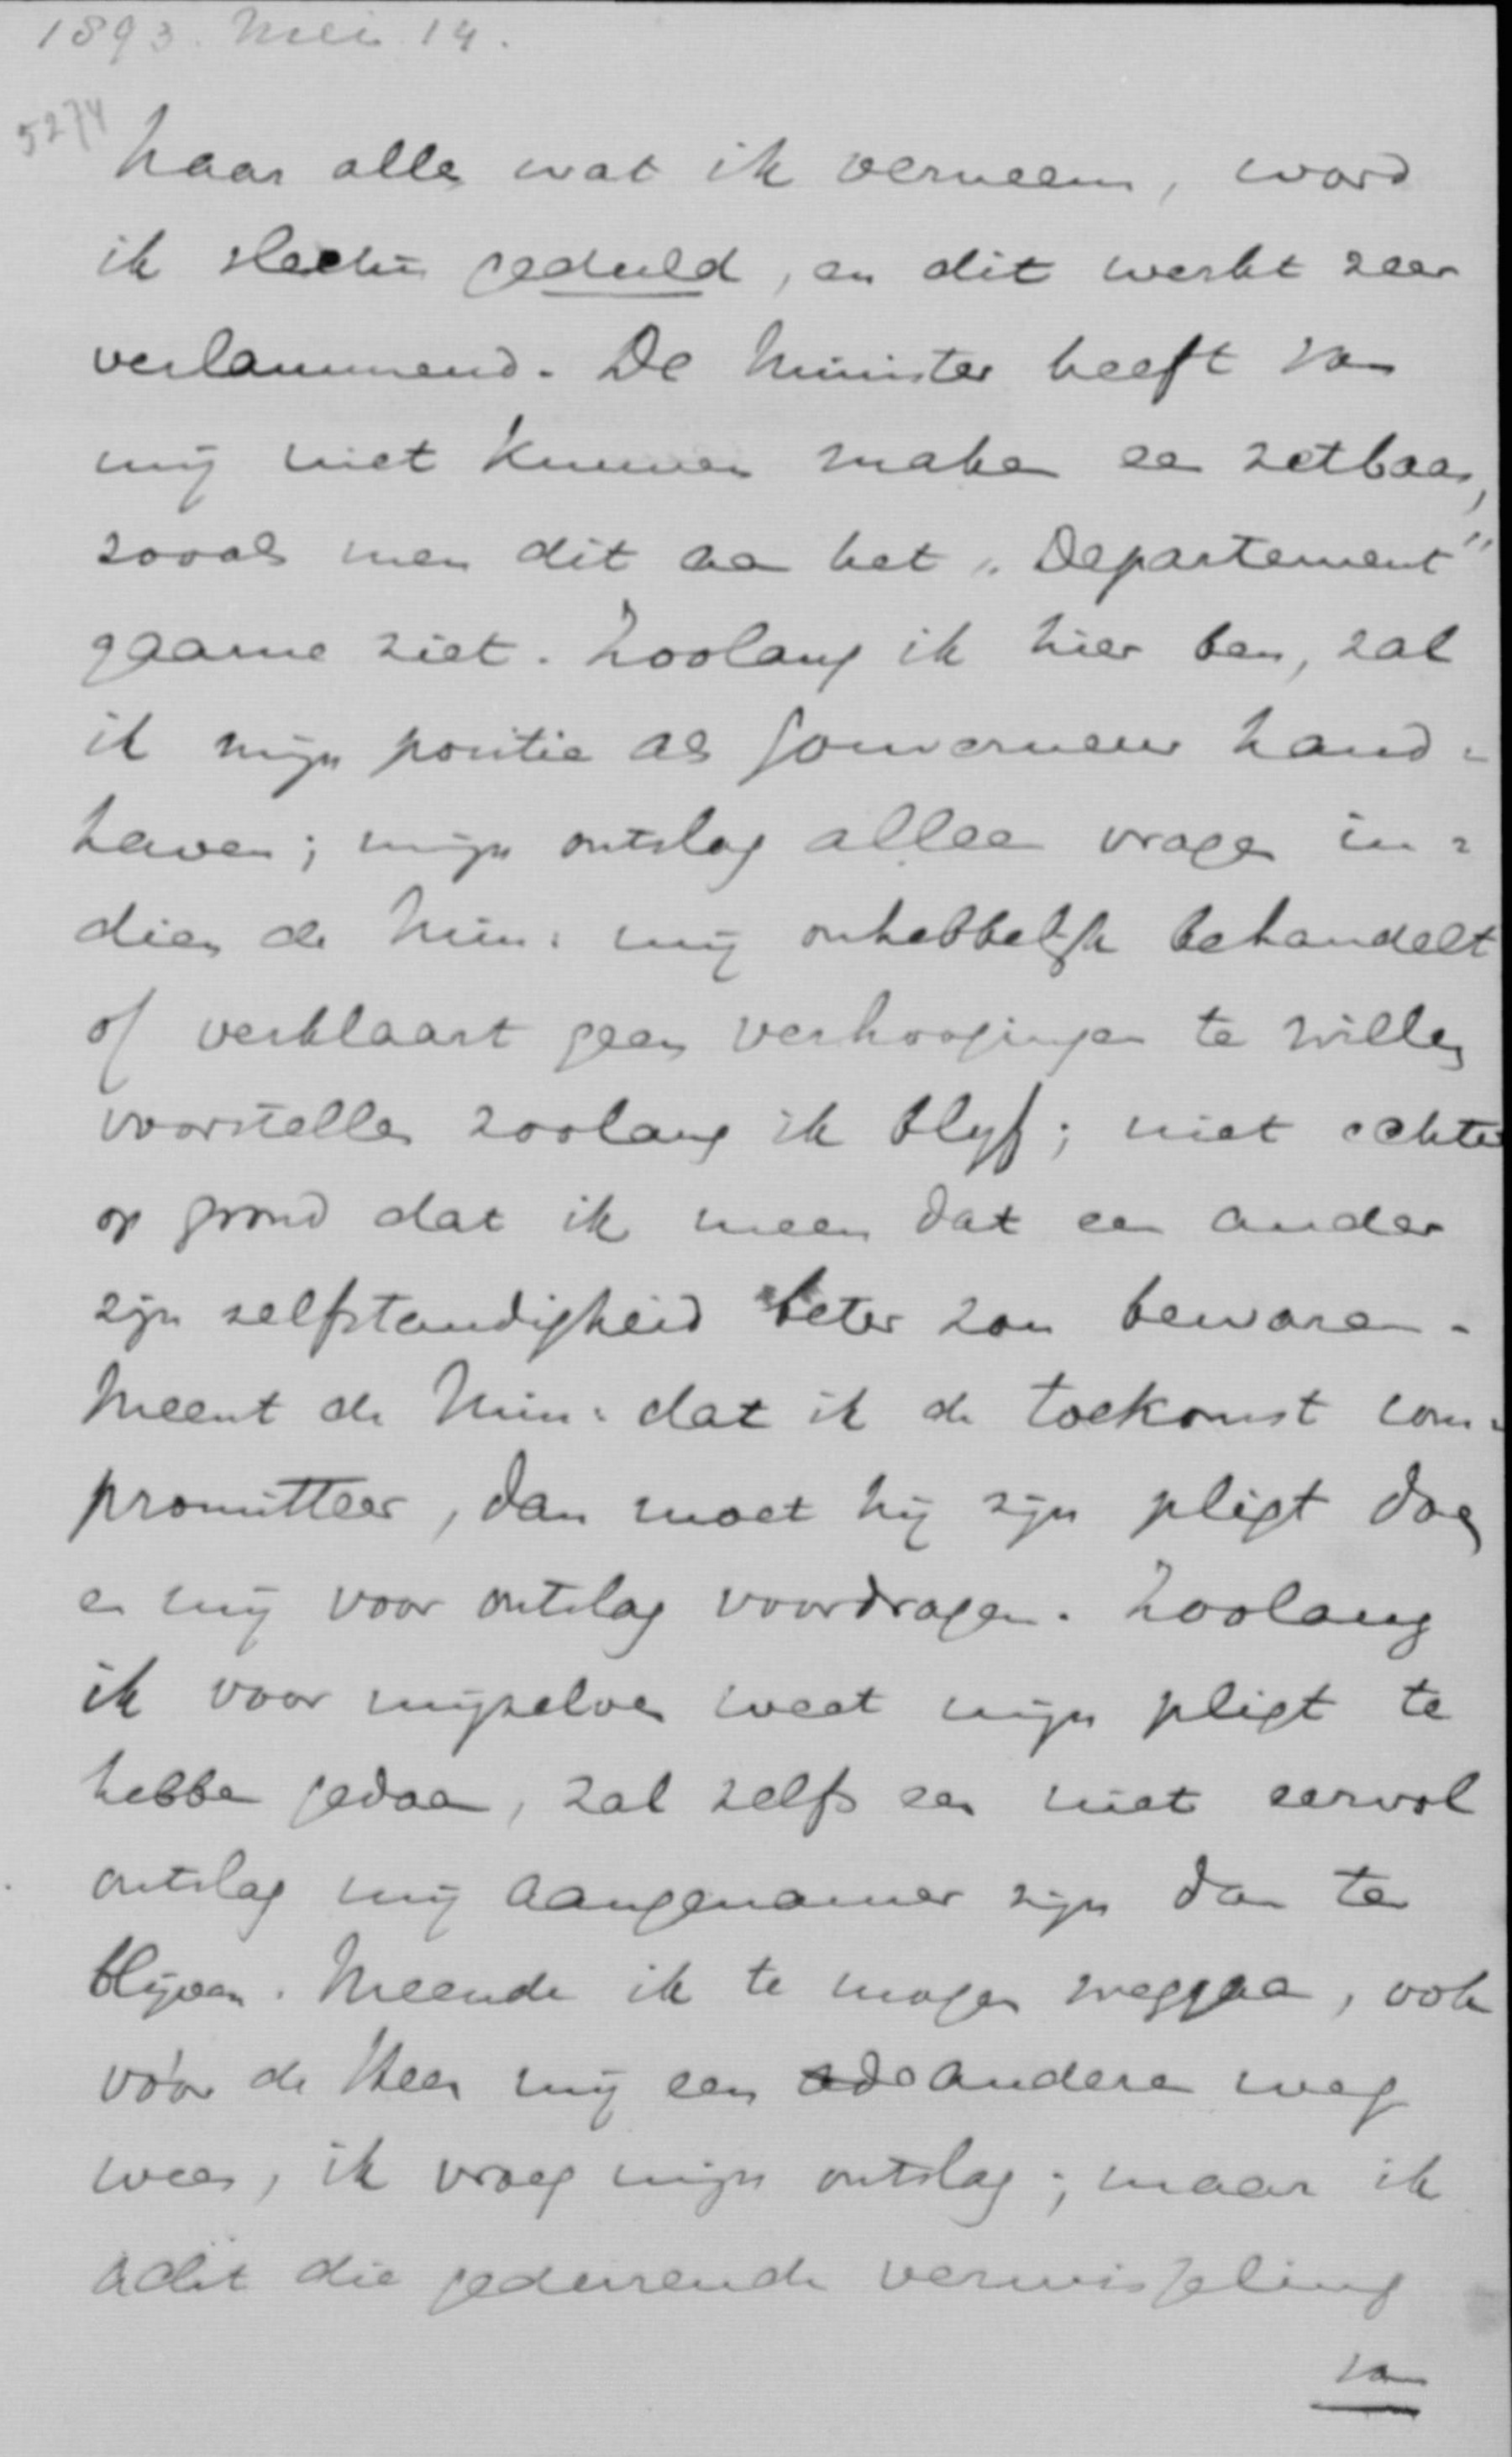 1893. Mei 14.
5274
Naar alles wat ik verneem, word
ik slechts geduld, en dit werkt zeer
verlammend. De Minister heeft van
mij niet kunnen maken een zetbaas,
zooals men dit aan het „Departement"
gaarne ziet. Zoolang ik hier ben, zal
ik mijn positie als Gouverneur hand=
haven; mijn ontslag alleen vragen in=
dien de Min: mij onhebbelijk behandelt
of verklaart geen verhoogingen te willen
voorstellen zoolang ik blijf; niet echter
op grond dat ik meen dat een ander
zijn zelfstandigheid beter zou bewaren.
Meent de Min: dat ik de toekomst com=
promitteer, dan moet hij zijn pligt doen
en mij voor ontslag voordragen. Zoolang
ik voor mijzelven weet mijn pligt te
hebben gedaan, zal zelfs een niet eervol
ontslag mij aangenamer zijn dan te
blijven. Meende ik te mogen weggaan, ook
vóór de Heer mij een andere weg
wees, ik vroeg mijn ontslag; maar ik
acht die gedurende verwisseling
van